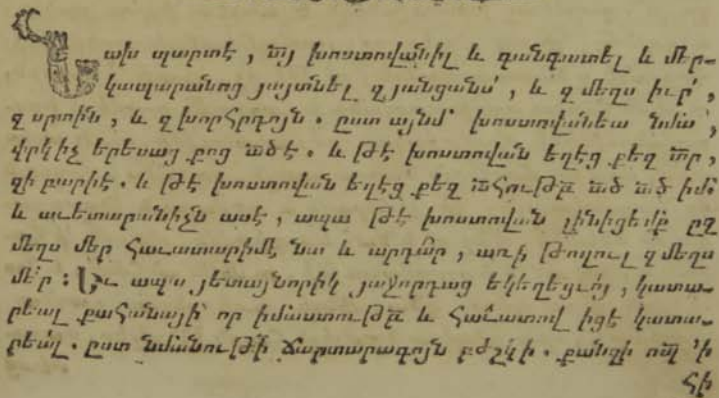 Նախ պարտէ, տյ խոստովանիլ և գանգատել և մեր֊
կապարանոց յայտնել զյանցանս, և զմեղս իւր,
զսրտին, և զխորհրդոյն. ըստ այնմ՝ խոստովանեա նմա,
փրկիչ երեսաց քոց ած է. և թէ խոստովան եղէց քեզ տր,
զի բարի է. և թէ խոստովան եղէց քեզ ած ած իմ։
և աւետարանիչն ասէ, ապա թէ խոստովան լինիցեմք զ
մեղս մեր հաւատարիմ է նա և արդար, առ ի թողուլ զմեղս
մեր։ Եւ ապա յետայնորիկ յաջորդաց եկեղեցւոյ, կատա֊
րեալ քահանայի որ իմաստութբ և հաւատով իցէ կատա֊
րեալ. ըստ նմանութի ճարտարագոյն բժշկի. քանզի ոպ ՚ի
հի